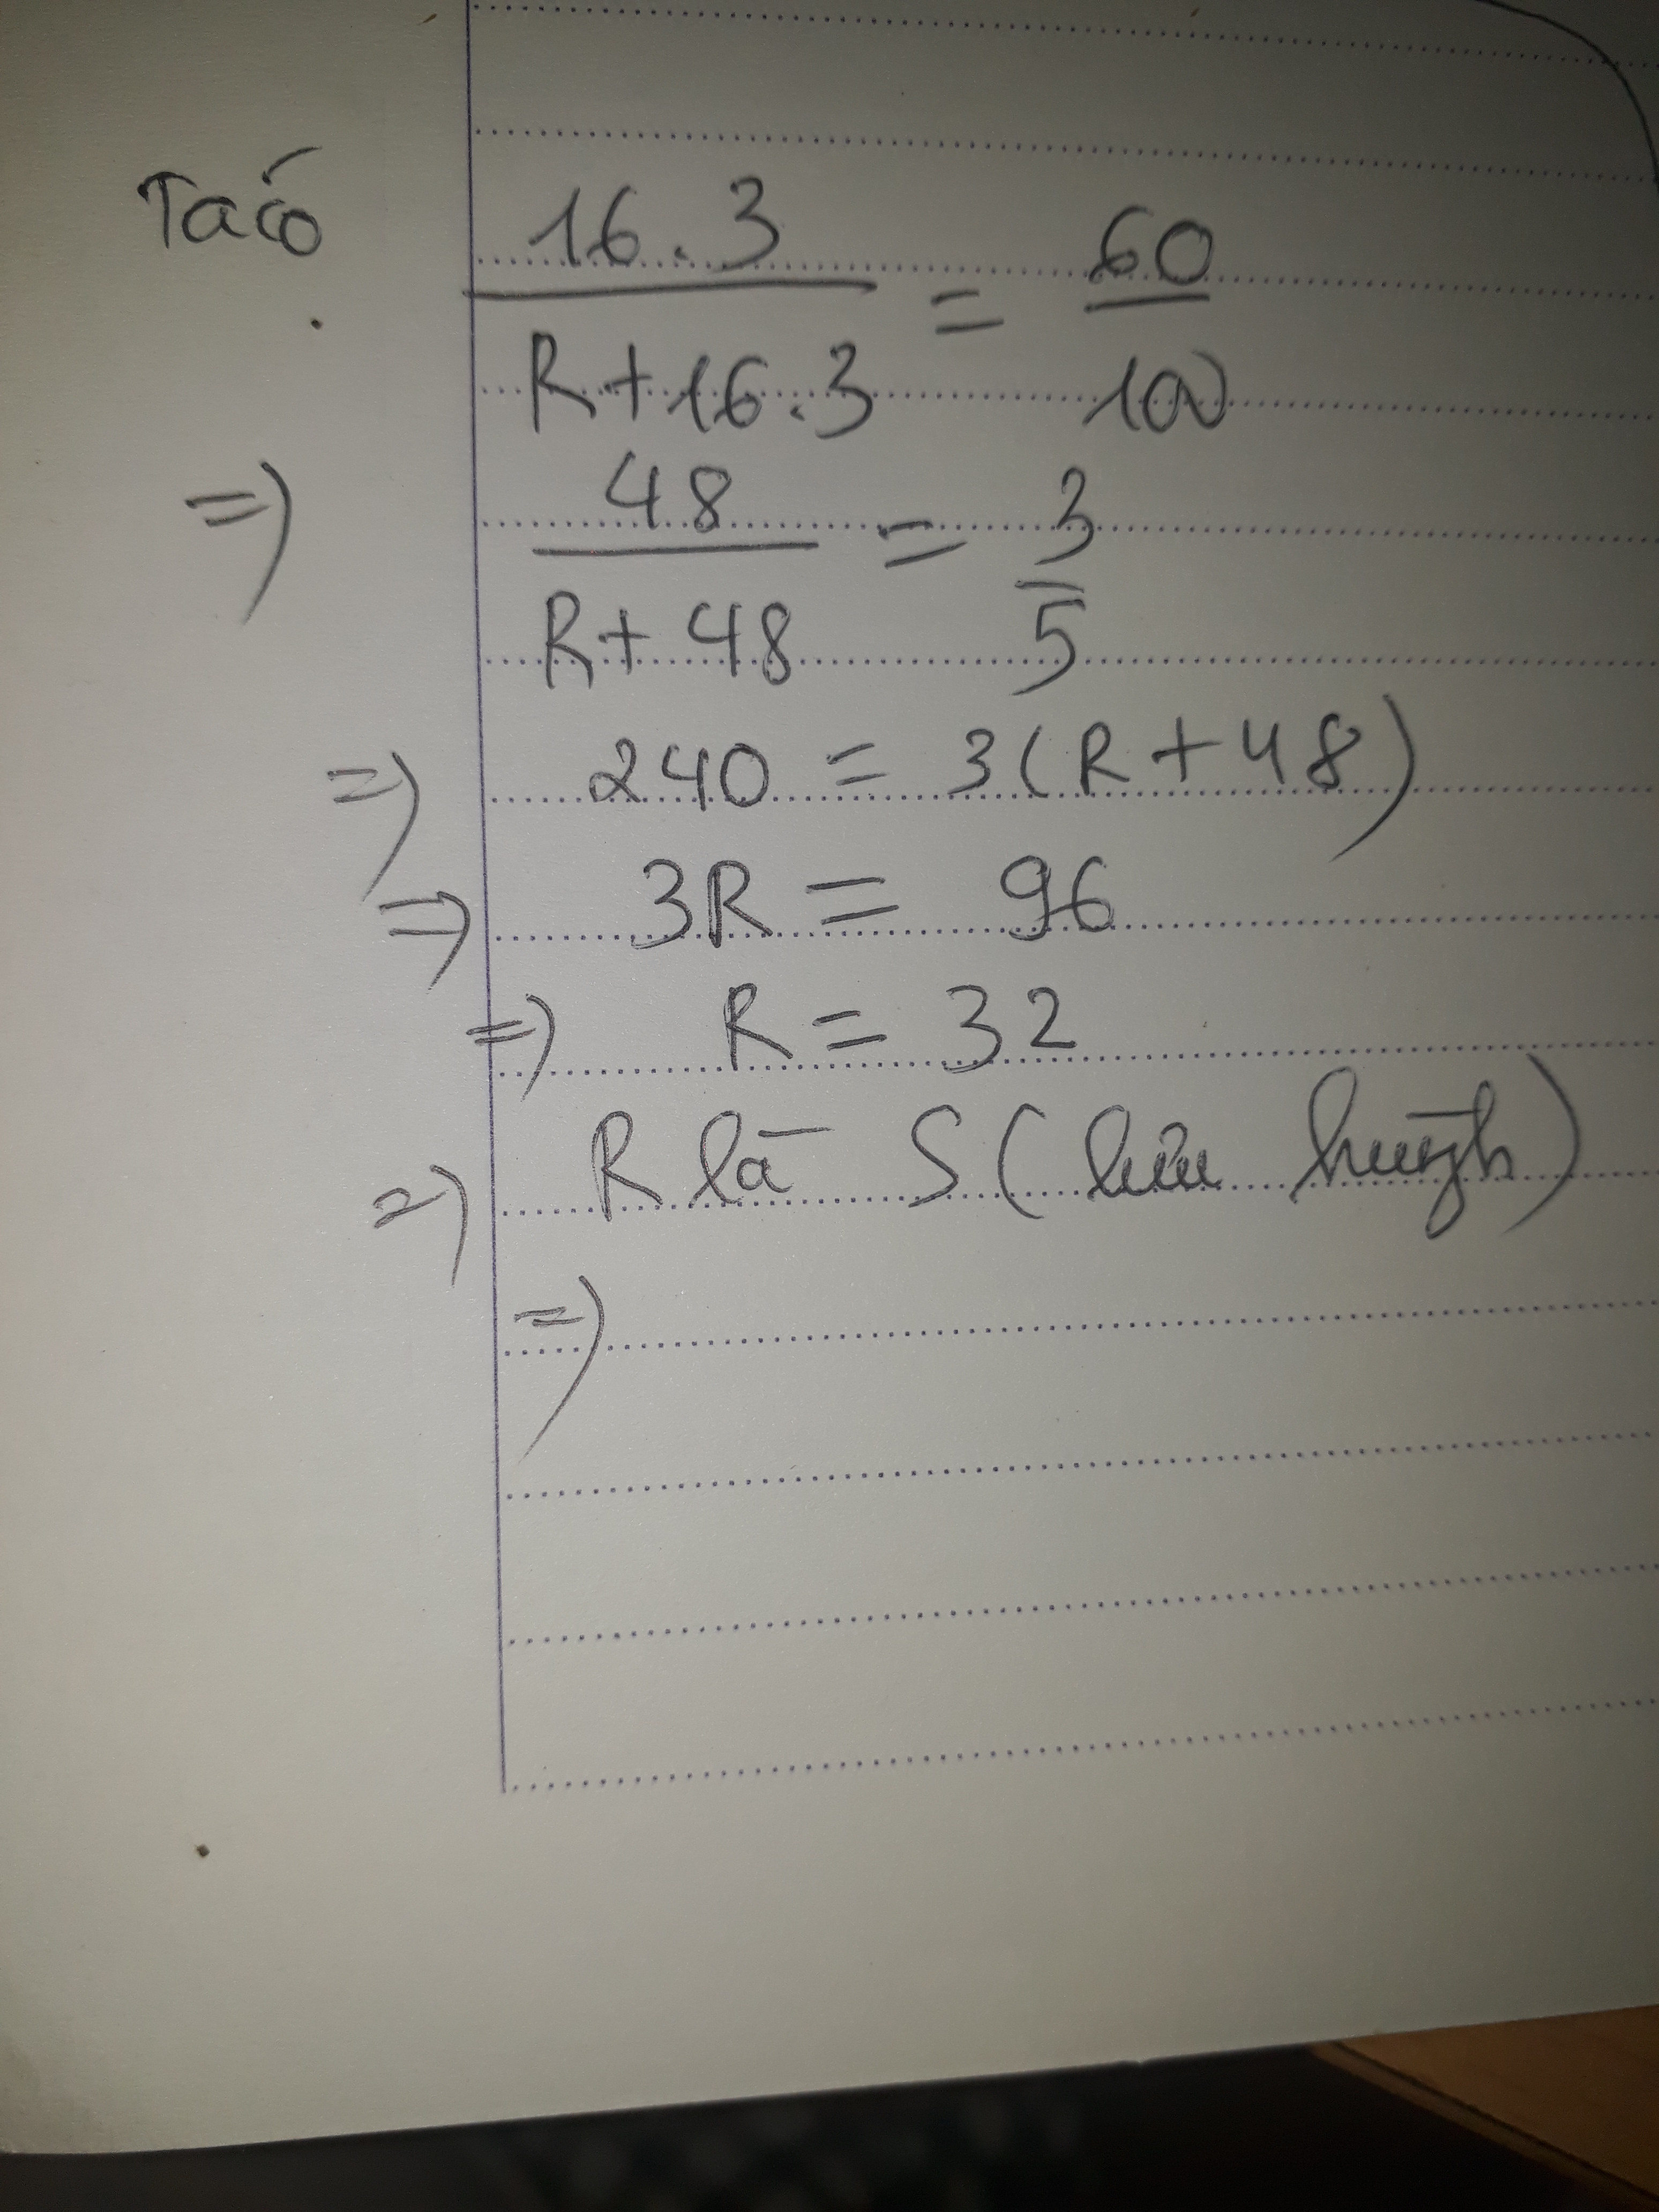 Ta có 16.3 / R+16.3 = 60 / 100
=> 48 / R+48 = 3 / 5
=> 240 = 3(R+48)
=> 3R = 96
=> R = 32
=> R là S (lưu huỳnh)
=>